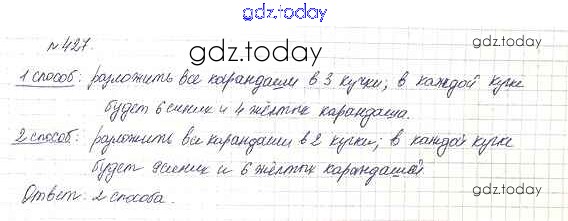 gdz.today
№427.
gdz.today
1 способ: разложить все карандаши в 3 кучки; в каждой кучке
будет 6 синих и 4 жёлтых карандаша.
2 способ: разложить все карандаши в 2 кучки; в каждой кучке
будет 9 синих и 6 жёлтых карандашей
gdz.today
Ответ: 2 способа.
gdz.today